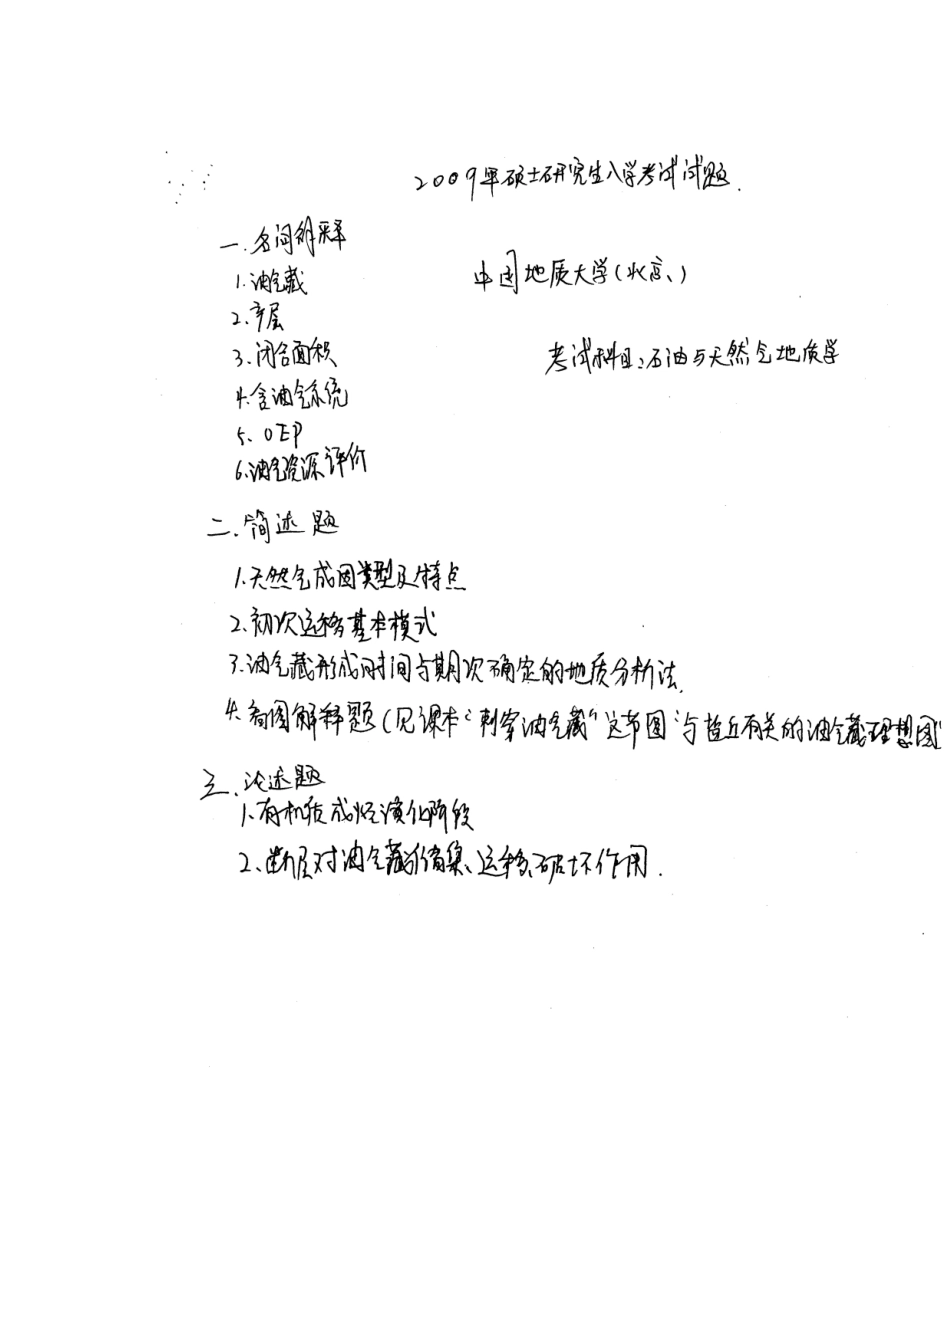 2009年硕士研究生入学考试试题.
一.名词解释
中国地质大学(北京、)
1.油气藏
2.产层
3.闭合面积
考试科目:石油与天然气地质学
4.含油气系统
5、OEP
6.油气资源评价
二.简述题
1.天然气成因类型及特点
2.初次运移基本模式
3.油气藏形成时间与期次确定的地质分析法.
4.看图解释题(见课本“刺穿油气藏”这节图“与盐丘有关的油气藏理想图”
三.论述题
1.有机质成烃演化阶段
2、断层对油气藏储集、运移、破坏作用.